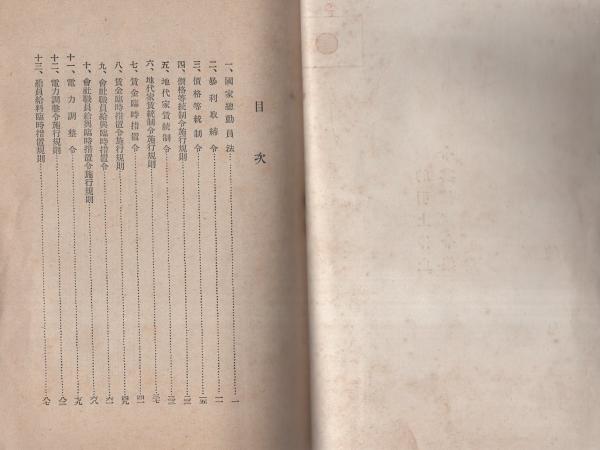 目次
一、國家總動員法…一
二、暴利取締令…一一
三、價格等統制令…一五
四、價格等統制令施行規則…
五、地代家賃統制令…
六、地代家賃統制令施行規則…
七、賃金臨時措置令…四一
八、賃金臨時措置令施行規則…四九
九、會社職員給與臨時措置令…六一
十、會社職員給與臨時措置令施行規則…六八
十一、電力調整令…七九
十二、電力調整令施行規則…八二
十三、船員給料臨時措置規則…八七